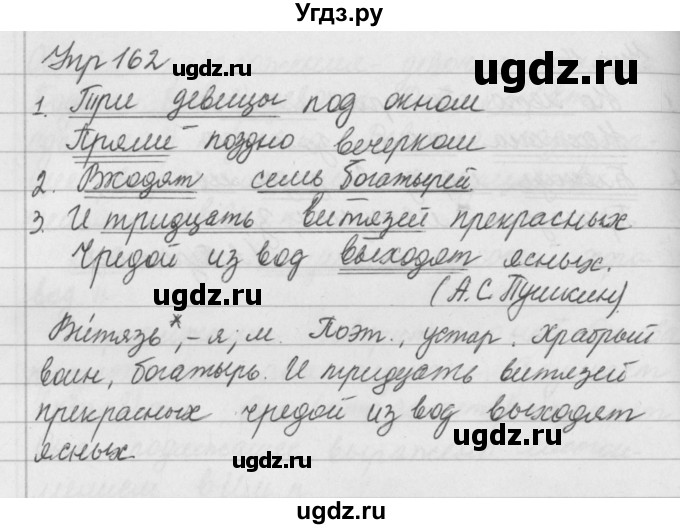 Угдз.ру
Упр 162
1. Три девицы под окном
Пряли поздно вечерком
2. Входят семь богатырей
3. И тридцать витязей прекрасных
Чредой из вод выходят ясных.
(А.С. Пушкин)
Витязь*, -я, м. Поэт., устар. Храбрый
воин, богатырь. И тридцать витязей
прекрасных чредой из вод выходят
ясных.
ugdz.ru
ugdz.ru
ugdz.ru
ugdz.ru
ugdz.ru
ugdz.ru
ugdz.ru
ugdz.ru
Угдз.ру